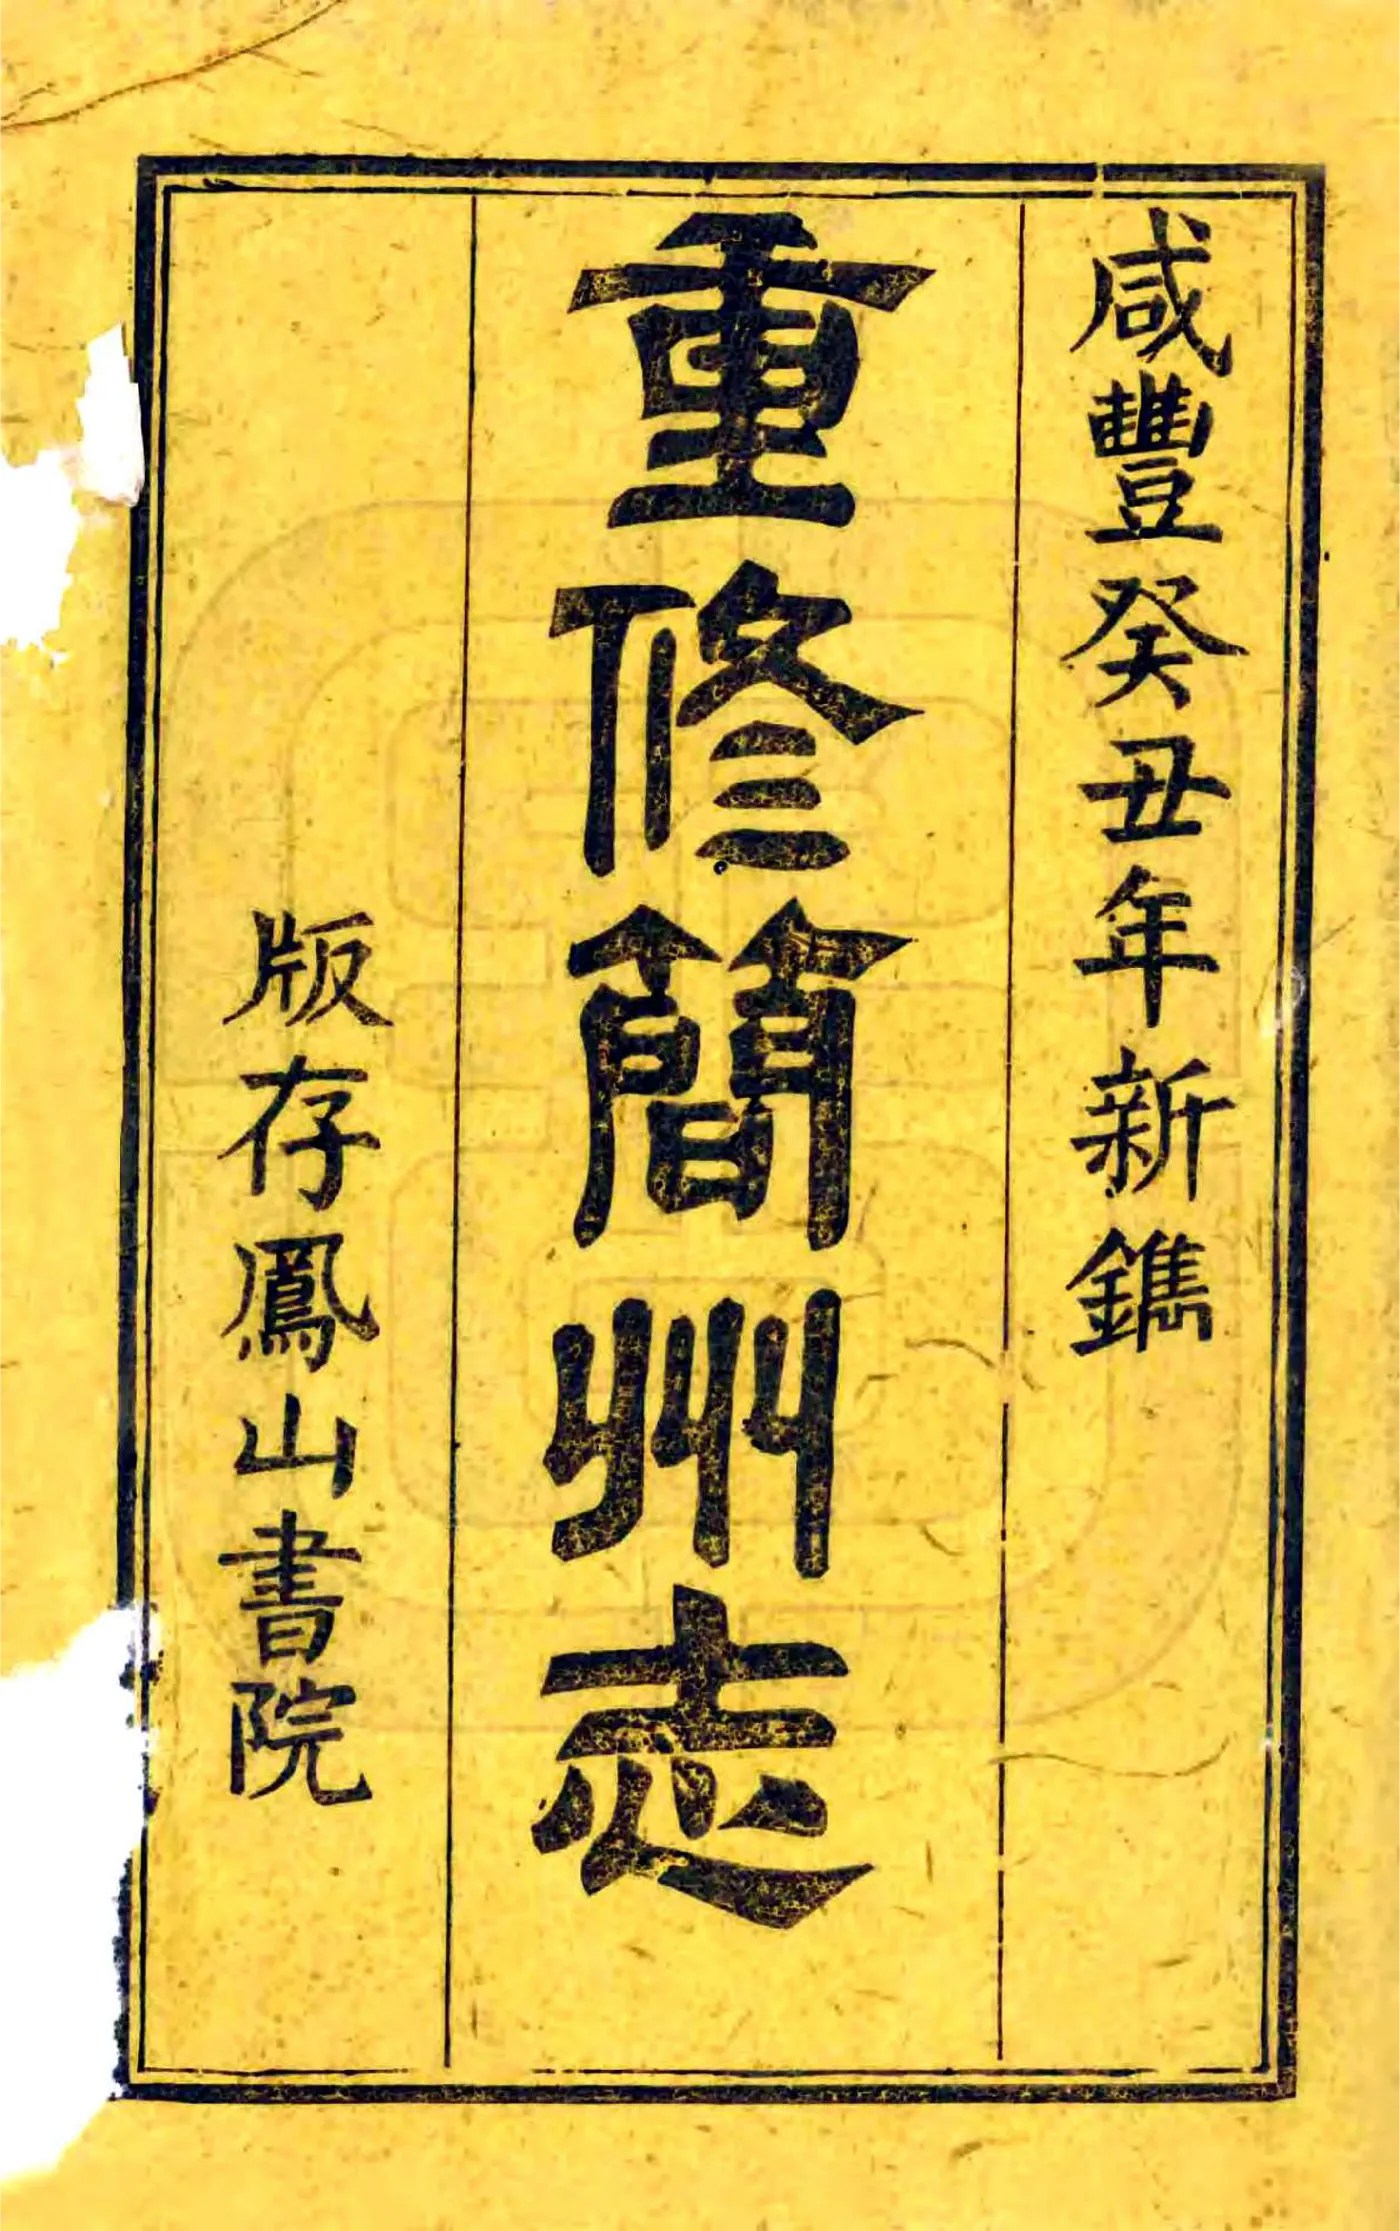 咸豐癸丑年新鐫
重修簡州志
版存鳳山書院